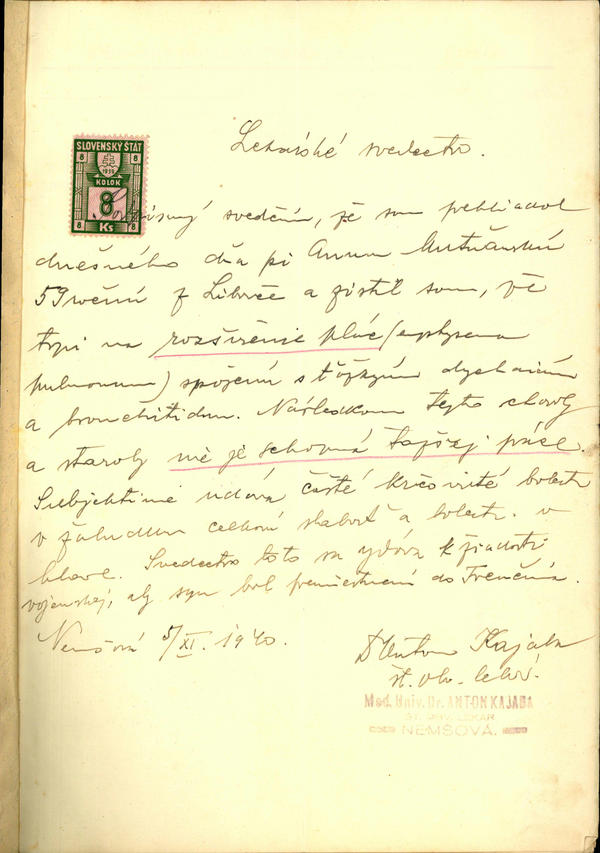 Lekářské svedectvo.
SLOVENSKÝ ŠTÁT
8 8
1939
KOLOK
8
8 Ks 8
svedčím, že som prehliadol
dnešného dňa pí Annu
59 ročnú z a zistil som, že
trpí na rozšírenie plúc (emphysema
pulmonum) spojeným s ťažkým dýchaním
a bronchitidou. Následkom tejto choroby
a staroby nie je schopná ťažšej práce.
Subjektívne udáva časté kŕčovité bolesti
v žalúdku celkovú slabosť a bolesti v
hlave. Svedectvo toto sa vydáva k žiadosti
vojenskej, aby syn bol premiestnený do Trenčína.
Nemšová 5/XI. 1940.
Dr Anton Kajaba
št. obv. lekár.
Med. Univ. Dr. ANTON KAJABA
ŠT. OBV. LEKÁR
NEMŠOVÁ.